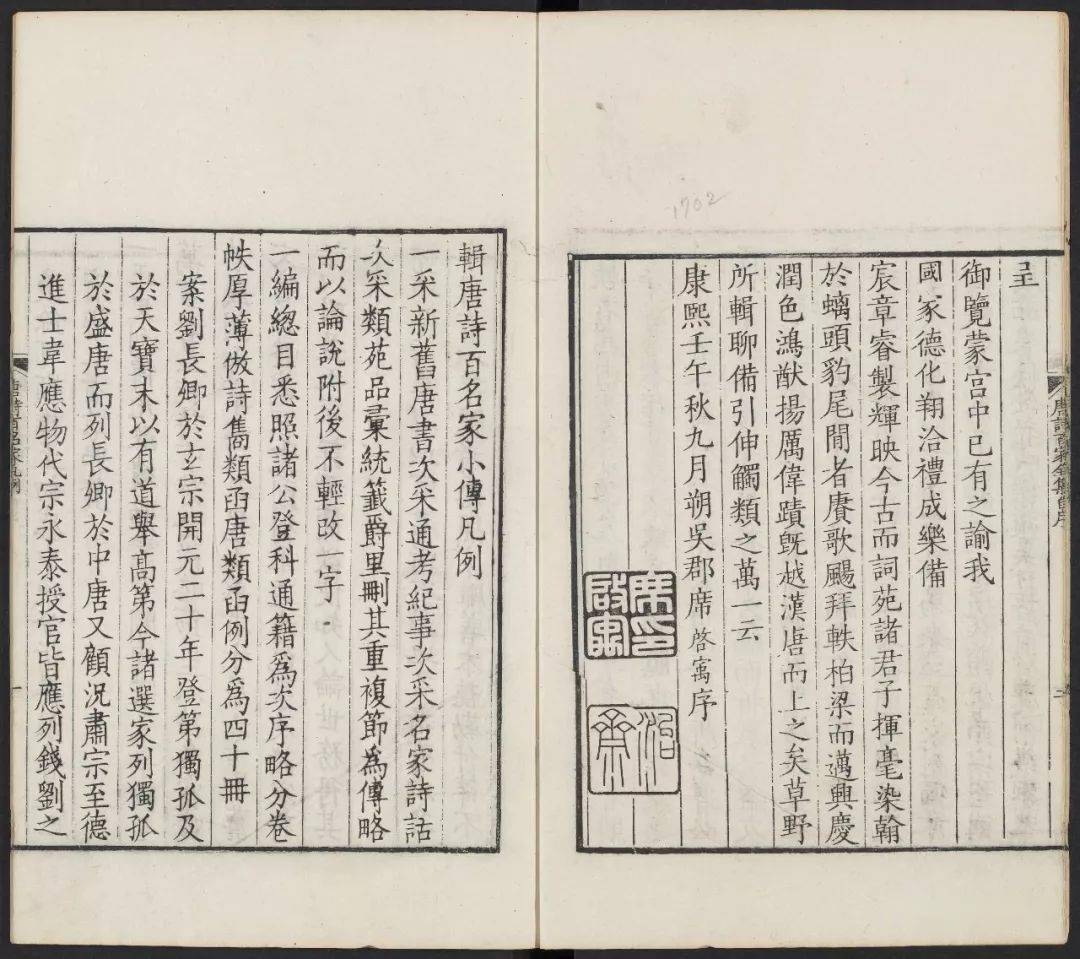 呈
御覽蒙宮中已有之諭我
國家德化翔洽禮成樂備
宸章睿製輝映今古而詞苑諸君子揮毫染翰
於螭頭豹尾間者賡歌颺拜軼柏梁而邁興慶
潤色鴻猷揚厲偉蹟既越漢唐而上之矣草野
所輯聊備引伸觸類之萬一云
康熙壬午秋九月朔吳郡席啓㝢序
席印啟寓
治齋
1702
唐詩百家全集自序
輯唐詩百名家小傳凡例
一采新舊唐書次采通考紀事次采名家詩話
次采類苑品彙統籤爵里刪其重複節為傳略
而以論說附後不輕改一字
一編總目悉照諸公登科通籍為次序略分卷
帙厚薄倣詩雋類函唐類函例分為四十冊
案劉長卿於玄宗開元二十年登第獨孤及
於天寶末以有道舉高第今諸選家列獨孤
於盛唐而列長卿於中唐又顧況肅宗至德
進士韋應物代宗永泰授官皆應列錢劉之
唐詩百名家凡例
一